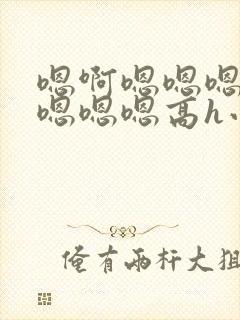 嗯啊嗯嗯嗯
嗯嗯嗯高h、
俺有两杆大狙